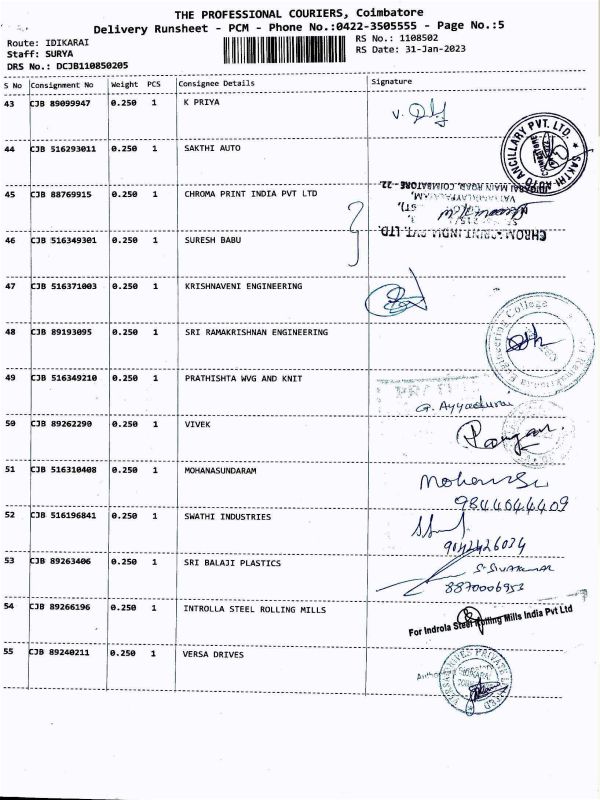 THE PROFESSIONAL COURIERS, Coimbatore
Delivery Runsheet - PCM - Phone No.:0422-3505555 - Page No.:5
Route: IDIKARAI
Staff: SURYA
DRS No.: DCJB110850205
RS No.: 1108502
RS Date: 31-Jan-2023
S No Consignment No Weight PCS Consignee Details Signature
43 CJB 89099947 0.250 1 K PRIYA
44 CJB 516293011 0.250 1 SAKTHI AUTO
SAKTHI AUTO ANCILLARY PVT. LTD.
45 CJB 88769915 0.250 1 CHROMA PRINT INDIA PVT LTD
MAIN ROAD, COIMBATORE - 22.
46 CJB 516349301 0.250 1 SURESH BABU
CHROMA PRINT INDIA PVT. LTD.
47 CJB 516371003 0.250 1 KRISHNAVENI ENGINEERING
48 CJB 89193095 0.250 1 SRI RAMAKRISHNAN ENGINEERING
Sri Ramakrishna Engineering College
49 CJB 516349210 0.250 1 PRATHISHTA WVG AND KNIT
G. Ayyadurai
50 CJB 89262290 0.250 1 VIVEK
51 CJB 516310408 0.250 1 MOHANASUNDARAM
9844644409
52 CJB 516196841 0.250 1 SWATHI INDUSTRIES
9142426034
53 CJB 89263406 0.250 1 SRI BALAJI PLASTICS
S. Sivakumar
8870006953
54 CJB 89266196 0.250 1 INTROLLA STEEL ROLLING MILLS
For Indrola Steel Rolling Mills India Pvt Ltd
55 CJB 89240211 0.250 1 VERSA DRIVES
VERSA DRIVES PRIVATE LIMITED